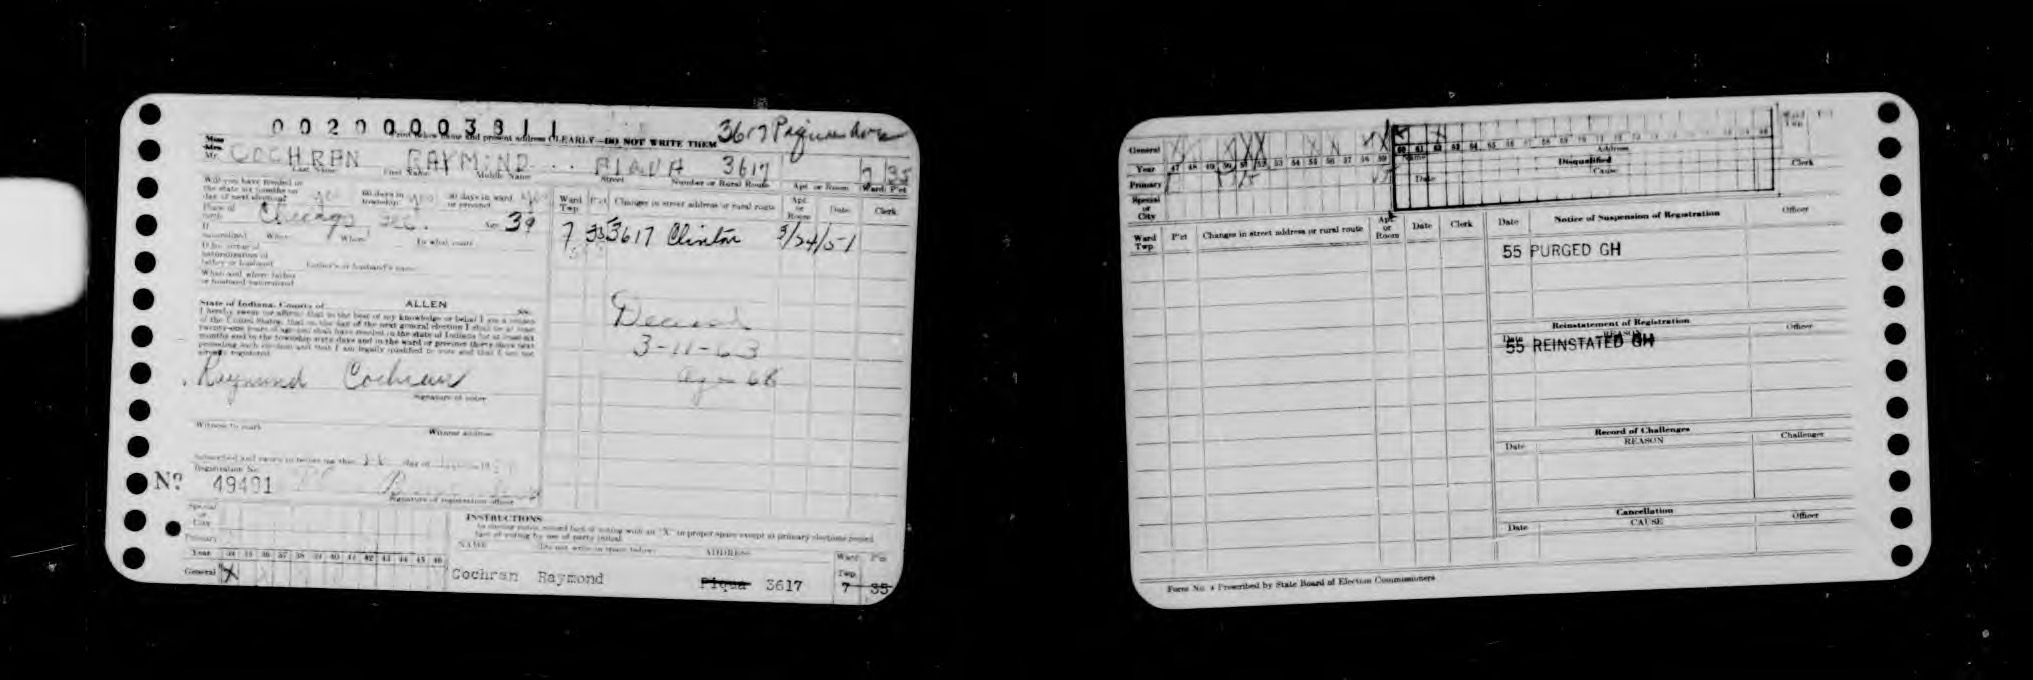 00200003811
3617 Piqua Ave
Miss
Mrs.
Mr. COCHRAN RAYMOND PIQUA 3617 7 35
Last Name First Name Middle Name Street Number or Rural Route Apt. or Room Ward P'ct
Print below name and present address CLEARLY—DO NOT WRITE THEM
Will you have resided in the state six months on day of next election? yes 60 days in township yes 30 days in ward or precinct yes
Place of birth Chicago, Age 39
If naturalized When Where To what court
If by virtue of naturalization of father or husband Father's or husband's name
When and where father or husband naturalized
State of Indiana, County of ALLEN
I hereby swear (or affirm) that to the best of my knowledge or belief I am a citizen
of the United States, that on the day of the next general election I shall be at least
twenty-one years of age and shall have resided in the state of Indiana for at least six
months and in the township sixty days and in the ward or precinct thirty days next
preceding such election and that I am legally qualified to vote and that I am not
already registered.
Raymond Cochran
Signature of voter
Witness to mark Witness address
Subscribed and sworn to before me this day of
Registration No.
Nº 49491
Signature of registration officer
Ward Twp P'ct Changes in street address or rural route Apt. or Room Date Clerk
7 35 3617 Clinton 5/24/51
Deceased
3-11-63
age 68
Special or City
Primary
Year 34 35 36 37 38 39 40 41 42 43 44 45 46
General X
INSTRUCTIONS
NAME Do not write in space below ADDRESS Ward Twp P'ct
Cochran Raymond Piqua 3617 7 35
General
Year 47 48 49 50 51 52 53 54 55 56 57 58 59
Primary
Special or City
60 61 62 63 64 65 66 67 68 69 70 71 72
Name Address
Disqualified
Date Cause
Ward Twp
Clerk
Ward Twp P'ct Changes in street address or rural route Apt. or Room Date Clerk
Date Notice of Suspension of Registration Officer
55 PURGED GH
Reinstatement of Registration
Date REASON Officer
55 REINSTATED GH
Record of Challenges
Date REASON Challenger
Cancellation
Date CAUSE Officer
Form No. 4 Prescribed by State Board of Election Commissioners